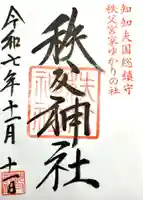 知知夫国総鎮守
秩父宮家ゆかりの社
秩父神社
令和七年十一月十一日